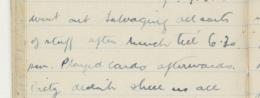 went out salvaging all sorts
of stuff after lunch till 6.30
pm. Played cards afterwards.
us all